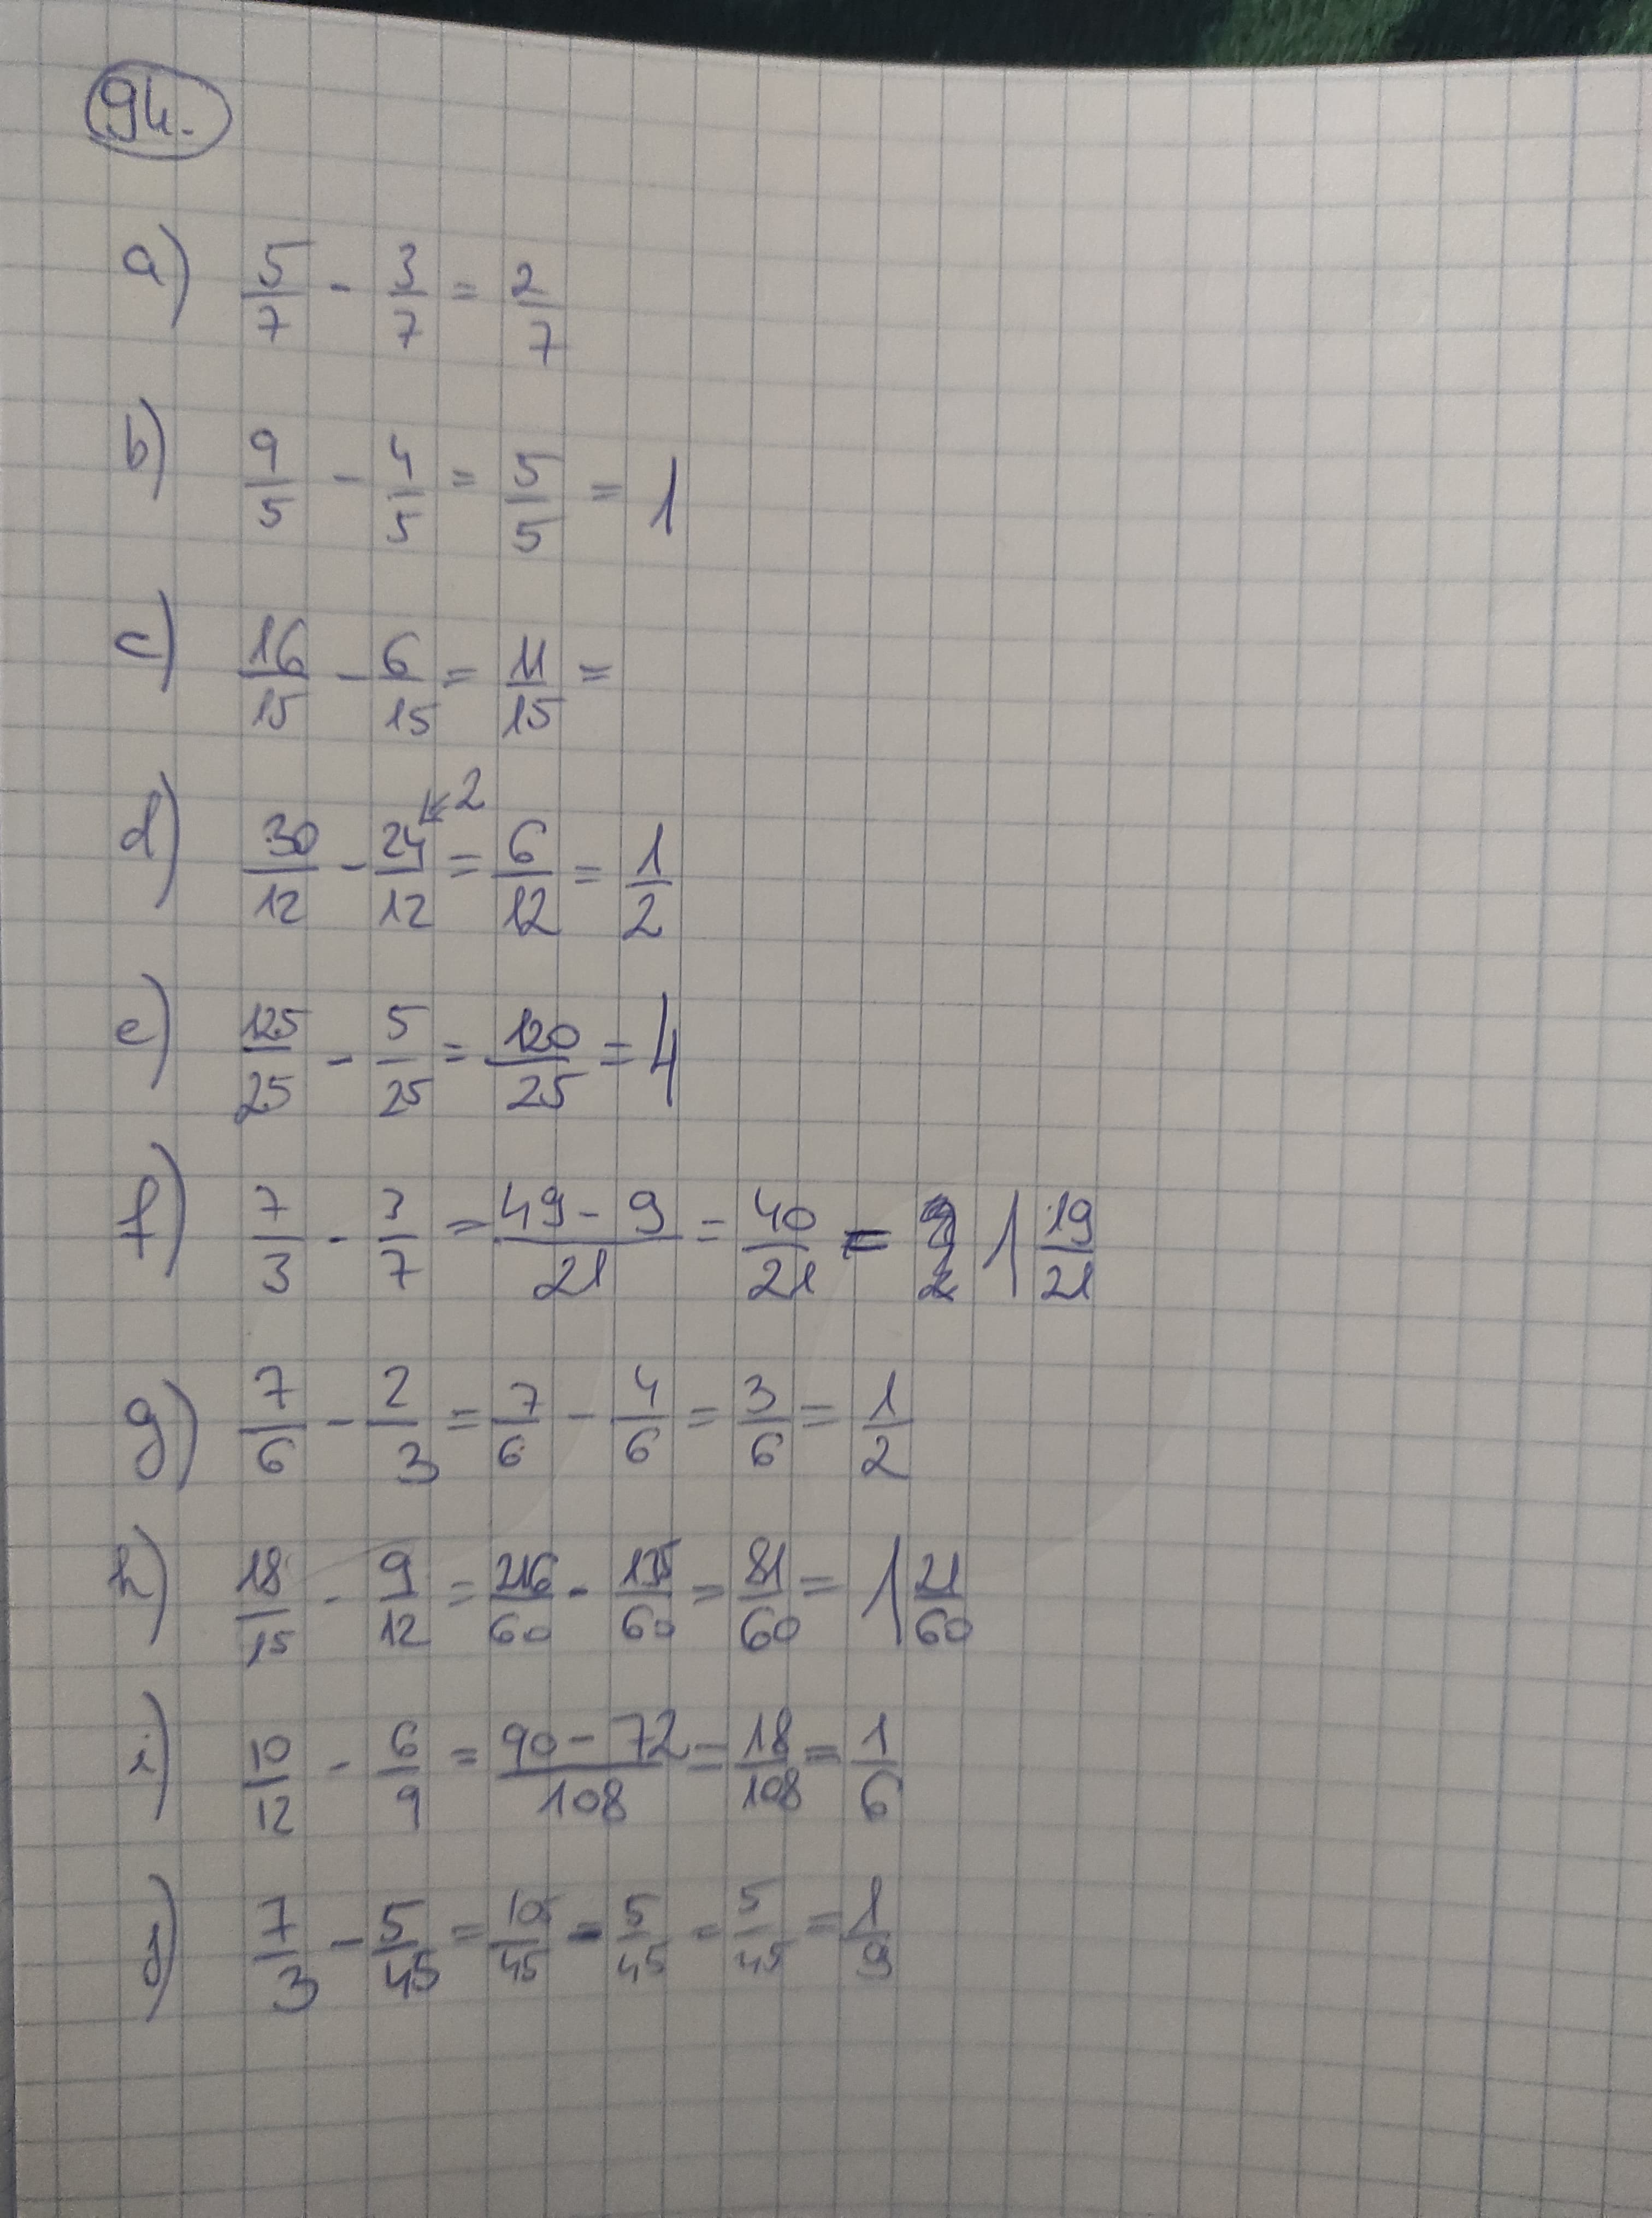 94.
a) 5/7 - 3/7 = 2/7
b) 9/5 - 4/5 = 5/5 = 1
c) 16/15 - 6/15 = 11/15 =
d) 30/12 - 24/12 = 6/12 = 1/2
↙2
e) 125/25 - 5/25 = 120/25 = 4
f) 7/3 - 3/7 = (49 - 9)/21 = 40/21 = 1 19/21
g) 7/6 - 2/3 = 7/6 - 4/6 = 3/6 = 1/2
h) 18/15 - 9/12 = 216/60 - 135/60 = 81/60 = 1 21/60
i) 10/12 - 6/9 = (90 - 72)/108 = 18/108 = 1/6
j) 7/3 - 5/45 = /45 - 5/45 = 5/45 = 1/9